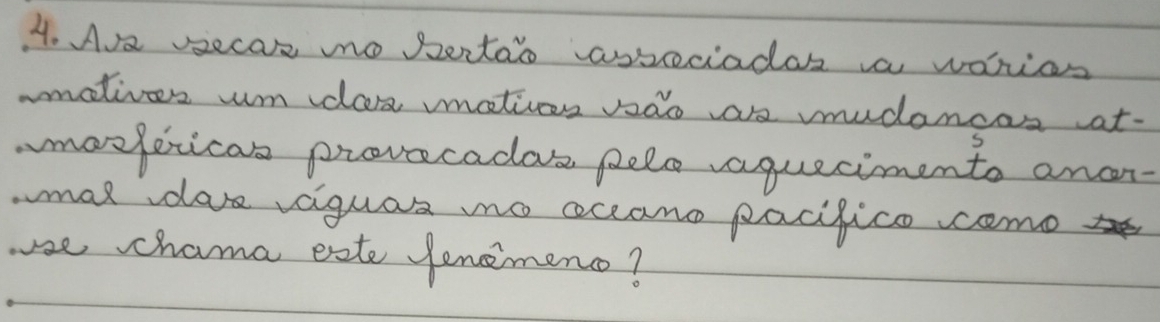 4. As secas no Sertão associadas a várias
motivos um dos motivos são as mudanças at-
mosféricas provocadas pelo aquecimento anor-
mal das águas no oceano pacífico como
se chama este fenômeno?